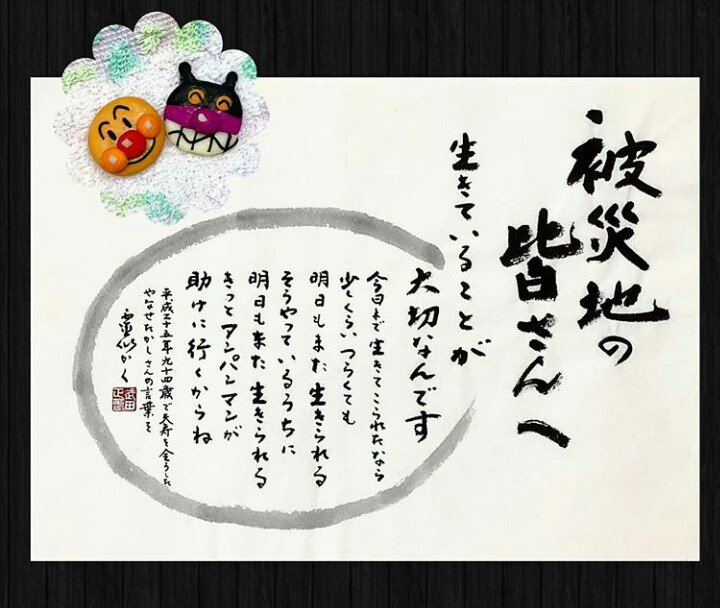 被災地の
皆さんへ
生きていることが
大切なんです
今日まで生きてこられたなら
少しくらいつらくても
明日もまた生きられる
そうやっているうちに
明日もまた生きられる
きっとアンパンマンが
助けに行くからね
平成二十五年九十四歳で天寿を全うした
やなせたかしさんの言葉を
かく